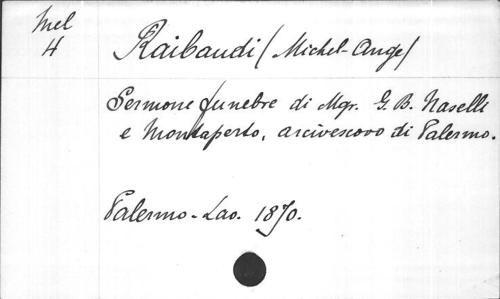 Mel
4
Raibaudi (Michel-Ange)
Sermone funebre di Mgr. G. B. Naselli
e Montaperto, arcivescovo di Palermo.
Palermo - Lao. 1870.